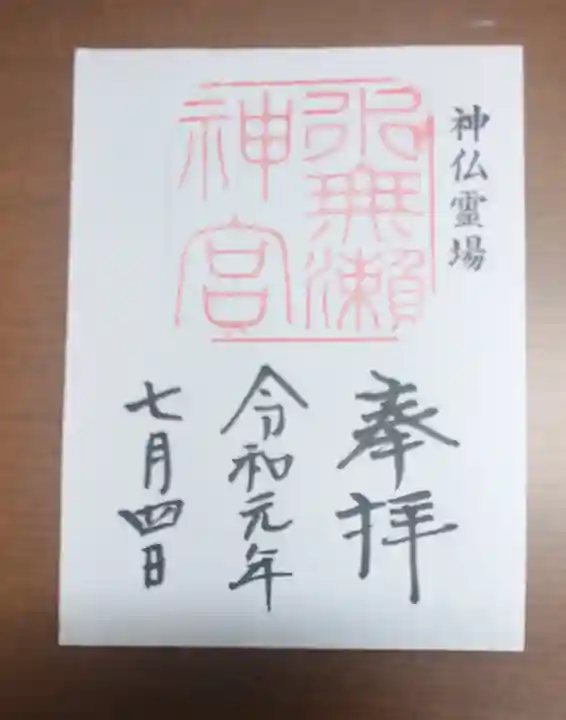 神仏霊場
水無瀬
神宮
奉拝
令和元年
七月四日